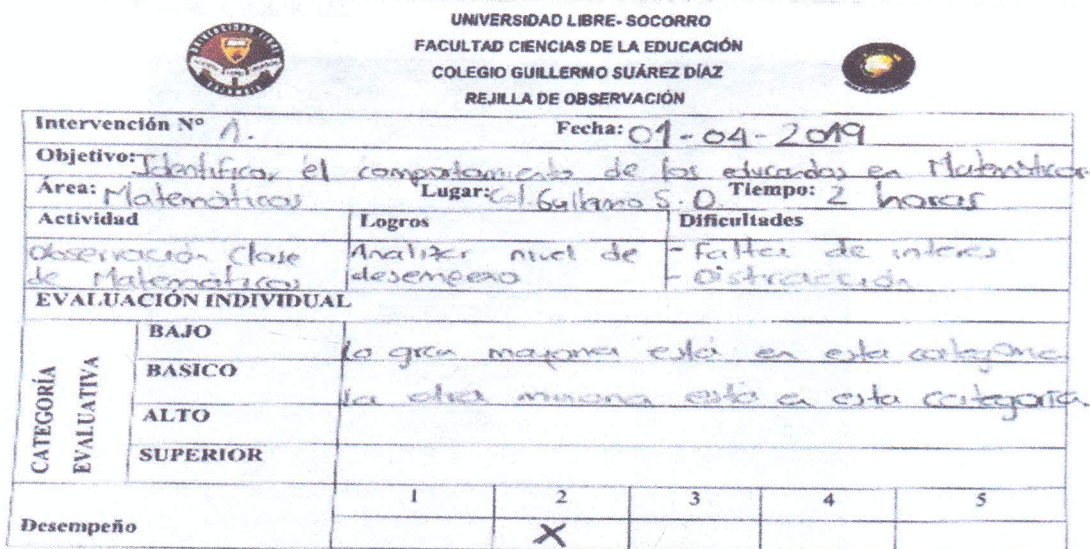 UNIVERSIDAD LIBRE- SOCORRO
FACULTAD CIENCIAS DE LA EDUCACIÓN
COLEGIO GUILLERMO SUÁREZ DÍAZ
REJILLA DE OBSERVACIÓN
Intervención N° 1. Fecha: 01-04-2019
Objetivo: Identificar el comportamiento de los educandos en Matemáticas
Área: Matemáticas Lugar: Col. Guillermo S. D. Tiempo: 2 horas
Actividad Logros Dificultades
Observación Clase Analizar nivel de - Falta de interes
de Matemáticas desempeño - Distracción
EVALUACIÓN INDIVIDUAL
CATEGORÍA EVALUATIVA
BAJO la gran mayoria está en esta categoria
BASICO la otra minoria está en esta categoria
ALTO
SUPERIOR
1 2 3 4 5
Desempeño X